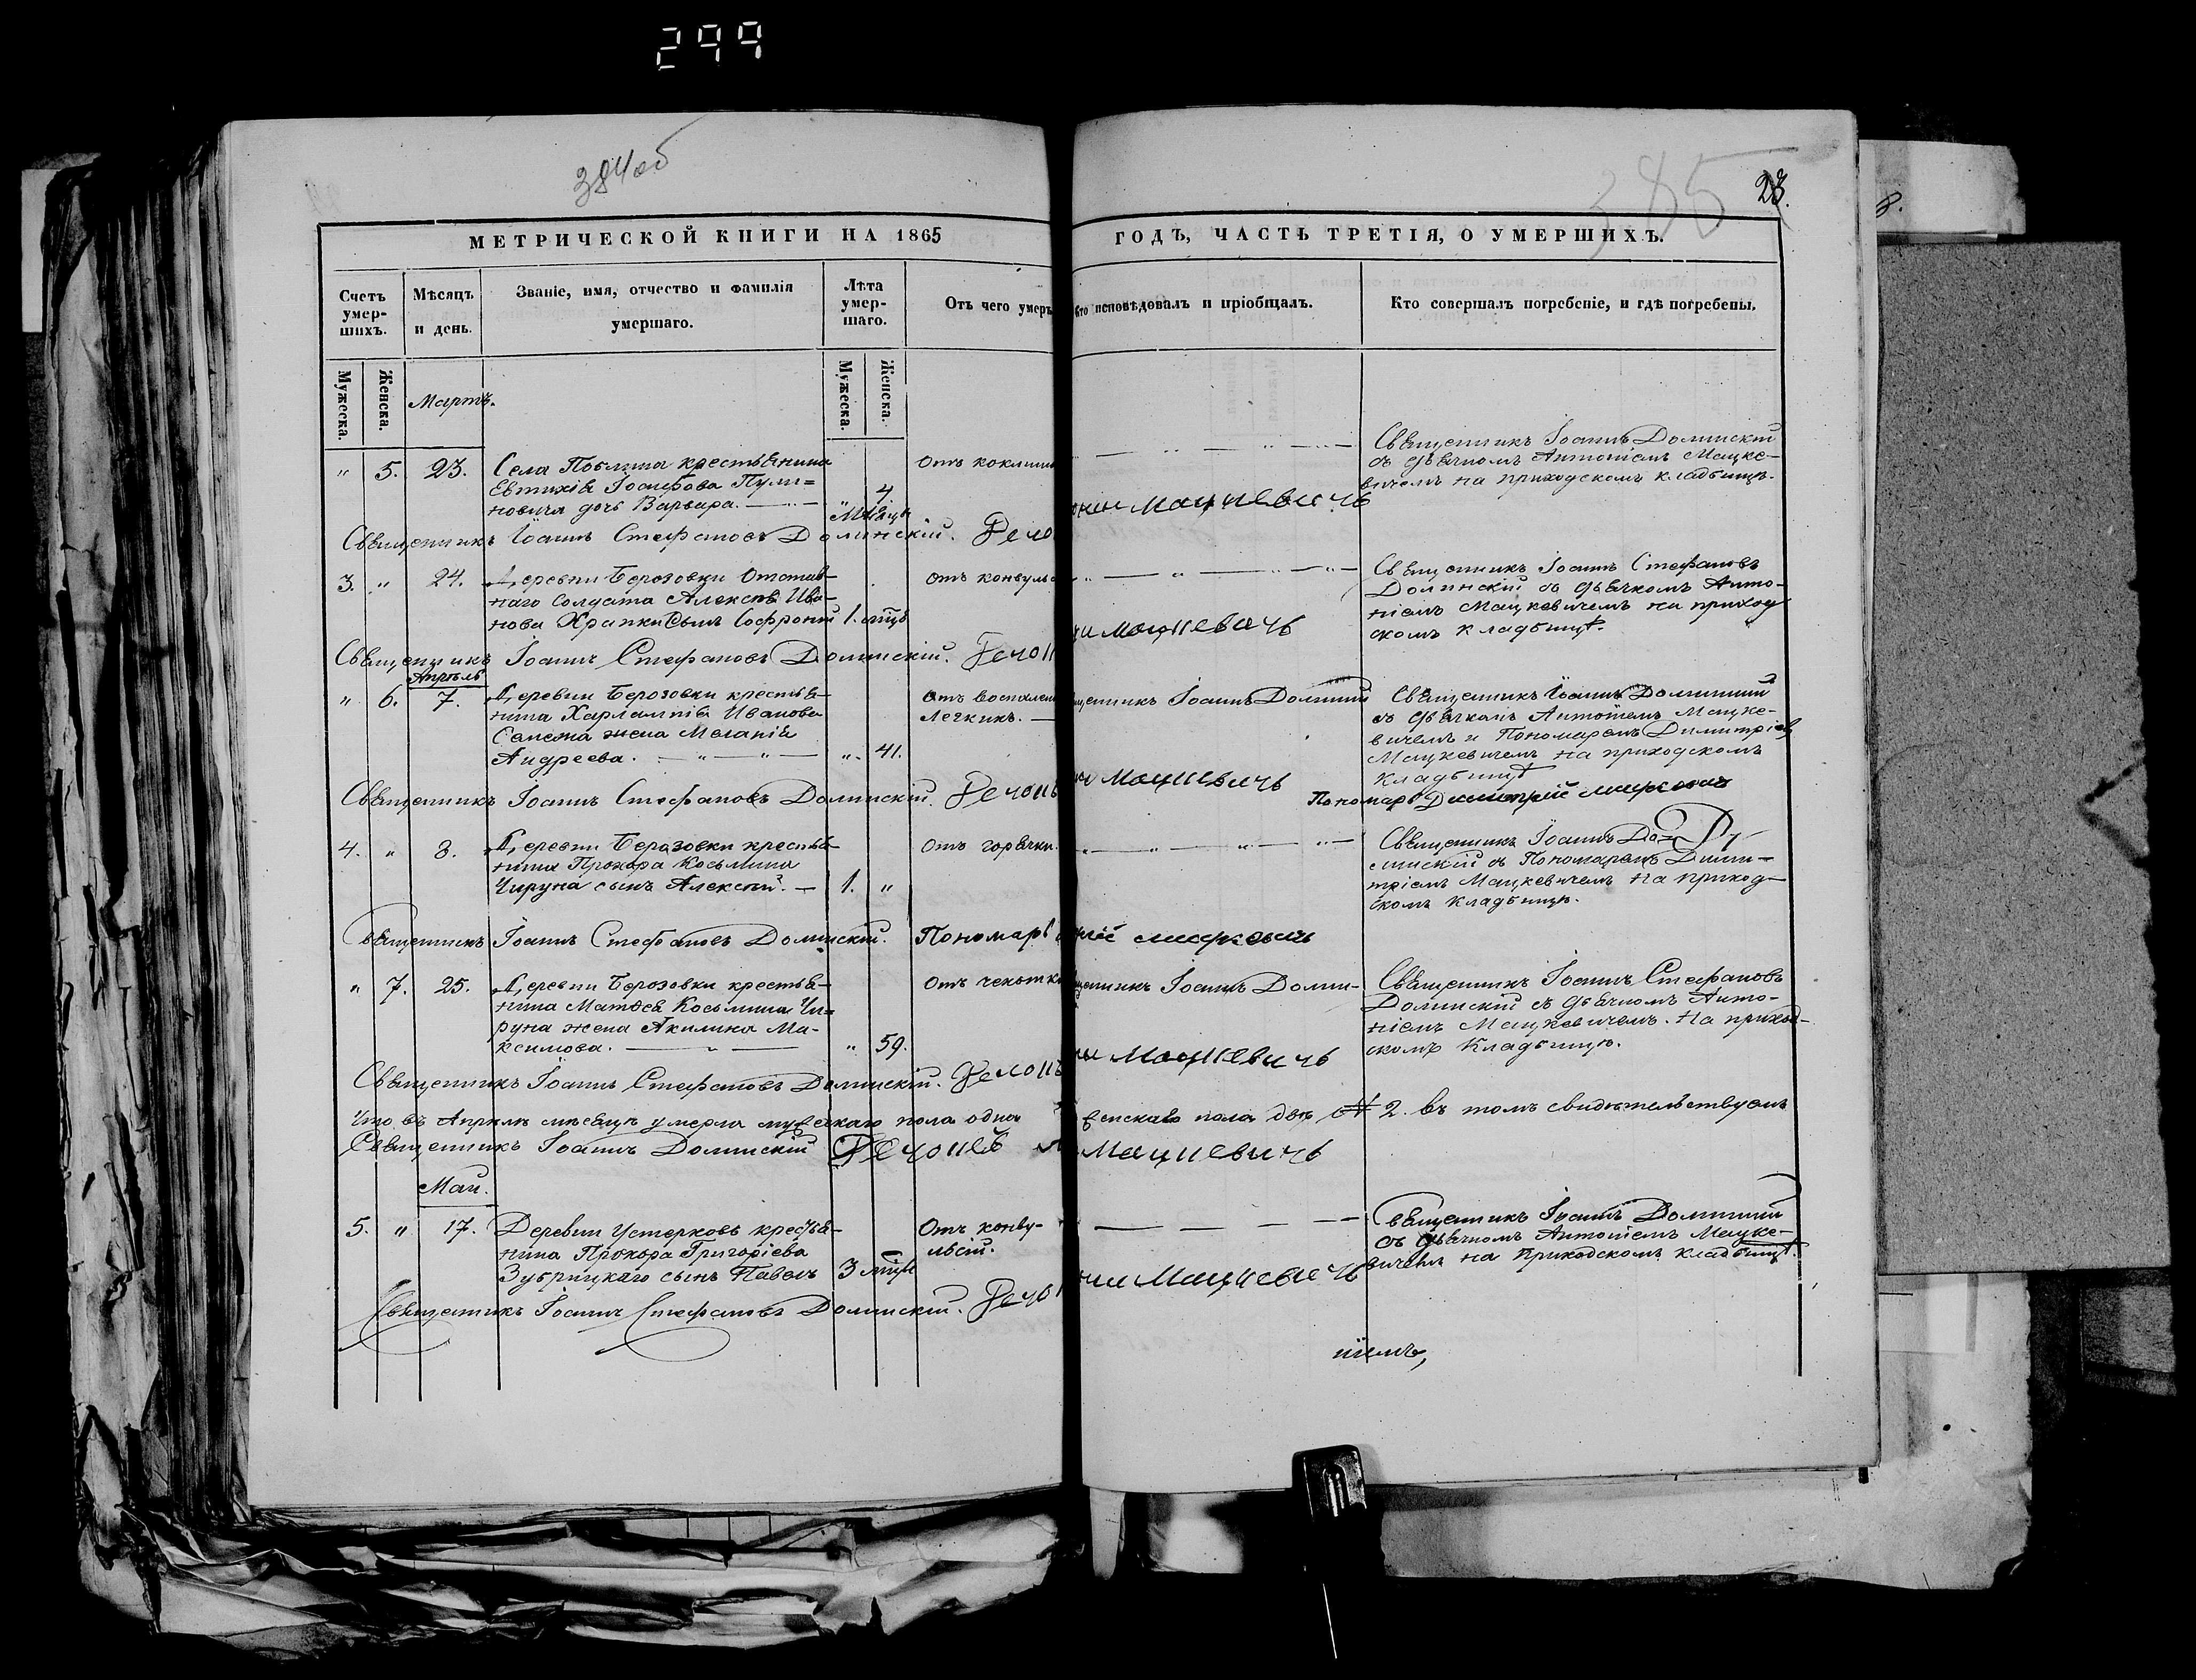 299
384об
385
28.
МЕТРИЧЕСКОЙ КНИГИ НА 1865 ГОДЪ, ЧАСТЬ ТРЕТІЯ, О УМЕРШИХЪ.
Счетъ умер-шихъ.
Мѣсяцъ и день.
Званіе, имя, отчество и фамилія умершаго.
Лѣта умер-шаго.
Отъ чего умеръ
Кто исповѣдовалъ и пріобщалъ.
Кто совершалъ погребеніе, и гдѣ погребены.
Мужеска.
Женска.
Мартъ.
Мужеска.
Женска.
" 5. 23. Села крестьянина
Евтихія Іосифова Пули=
новича дочь Варвара. " 4. мѣсяцы
Отъ коклюш
Священникъ Іоаннъ Долинскій
съ дьячкомъ Антоніемъ Мацке-
вичемъ на приходскомъ кладбищѣ.
Священникъ Іоаннъ Стефановъ Долинскій. Мацкевичъ
3. " 24. Деревни Березовки Отстав-
наго Солдата Алексѣя Ива-
нова Храпки Сынъ Софроній 1. мцъ
Отъ конвульс
Священникъ Іоаннъ Стефановъ
Долинскій съ дьячкомъ Анто-
ніемъ Мацкевичемъ на приход
скомъ кладбищѣ.
Священникъ Іоаннъ Стефановъ Долинскій. Мацкевичъ
Апрѣль
" 6. 7. Деревни Березовки крестья-
нина Харлампія Иванова
жена Меланія
Андреева. " 41.
Отъ воспален
Легкихъ.
щенникъ Іоаннъ
Священникъ Іоаннъ
съ дьячкомъ Антоніемъ Мацке-
вичемъ и Пономаремъ Димитріемъ
Мацкевичемъ на приходскомъ
кладбищѣ
Священникъ Іоаннъ Стефановъ Долинскій. Мацкевичъ
Пономарь Димитрій
4. " 8. Деревни Березовки крестья-
нина Прохора Косьмина
Чируна сынъ Алексѣй. 1. "
Отъ горячки.
Священникъ Іоаннъ До-
линскій съ Пономаремъ Дими-
тріемъ Мацкевичемъ на приход-
скомъ кладбищѣ.
Священникъ Іоаннъ Стефановъ Долинскій. Пономарь
" 7. 25. Деревни Березовки крестья-
нина Матѳея Косьмина Чи=
руна жена Акилина Ма-
ксимова. " 59.
Отъ чехотки
щенникъ Іоаннъ Долин-
Священникъ Іоаннъ Стефановъ
Долинскій съ дьячкомъ Анто-
ніемъ Мацкевичемъ. на приход-
скомъ кладбищѣ.
Священникъ Іоаннъ Стефановъ Долинскій. Мацкевичъ
Что въ Апрѣлѣ мѣсяцѣ умерло мужескаго пола одна женскаго пола двѣ № 2. въ томъ свидѣтельствуемъ
Священникъ Іоаннъ Долинскій Мацкевичъ
Май.
5. " 17. Деревни Устерковъ крестья-
нина Прохора Григоріева
Зубрицкаго сынъ Павелъ 3 мцы
Отъ конву-
льсій.
Священникъ Іоаннъ
съ дьячкомъ Антоніемъ Мацке-
вичемъ на Приходскомъ кладбищѣ.
Священникъ Іоаннъ Стефановъ Долинскій. Мацкевичъ